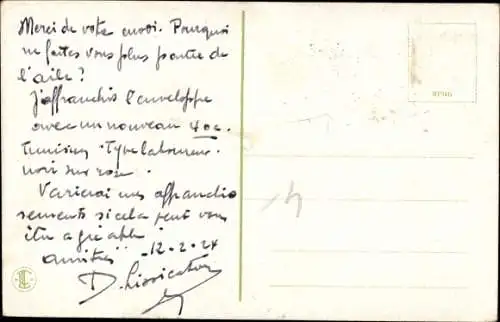 Merci de votre envoi. Pourquoi
ne faites vous plus partie de
l'aile?
J'affranchis l'enveloppe
avec un nouveau 40c
tunisien. Type laboureur
noir sur rose.
Varierai mes affranchis
sements si cela peut vous
être agréable
amitiés -12-2-24
D.